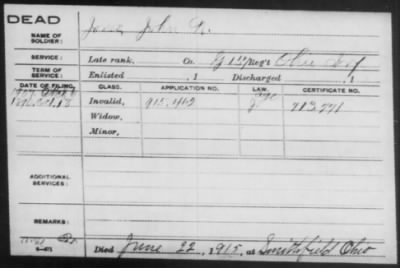 DEAD
NAME OF SOLDIER: John
SERVICE: Late rank, Co. G Reg't Ohio Inf
TERM OF SERVICE: Enlisted , 1 Discharged , 1
DATE OF FILING. CLASS. APPLICATION NO. LAW.
Invalid, 915,462 713,771
Widow,
Minor,
ADDITIONAL SERVICES:
REMARKS:
Died June 22, 1915, at Smithfield Ohio